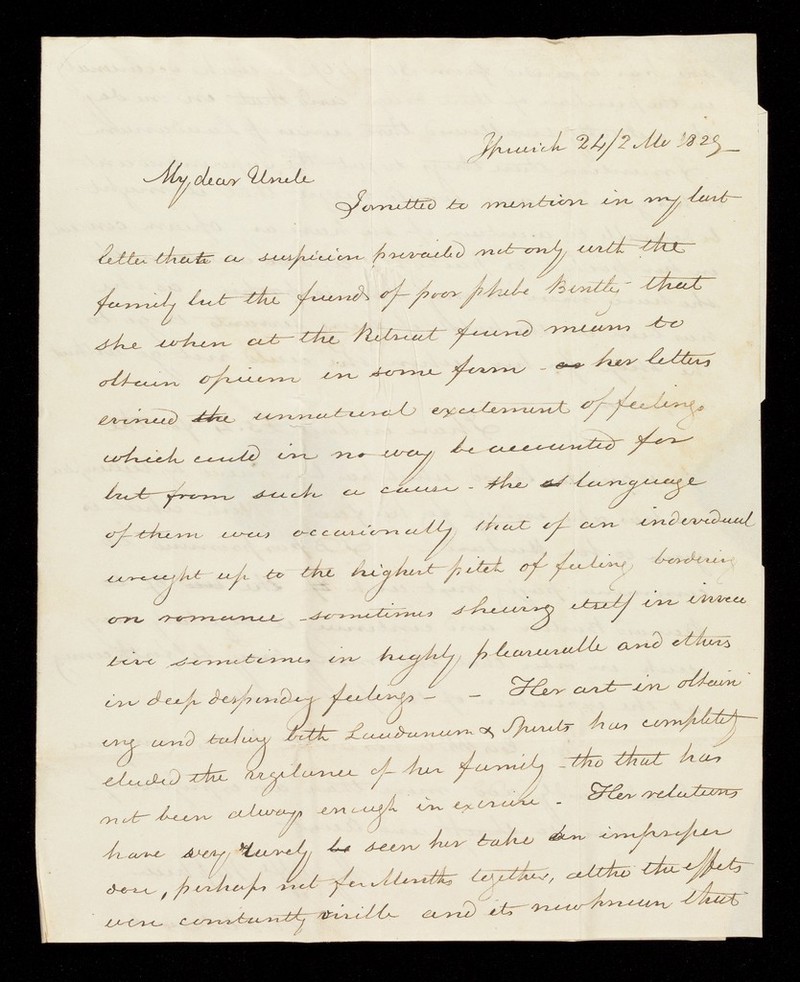 Ipswich 24/2 Mo 1829
My dear Uncle
I omitted to mention in my last
letter that a suspicion prevailed not only with the
family but the friends of poor phebe Bently - that
she when at the Retreat found means to
obtain opium in some form - as her letters
evinced the unnatural excitement of feelings
which could in no way be accounted for
but from such a cause - the language
of them was occasionally that of an indevidual
wrought up to the highest pitch of feeling bordering
on romance - sometimes shewing itself in invec
tive sometimes in highly pleasurable and others
in deep desponding feelings - - Her art in obtain
ing and taking both Laudanum & Spirits has completely
eluded the vigilance of her family - tho that has
not been always enough in exercise - Her relations
have very rarely seen her take an improper
dose, perhaps not for Months together, altho the effects
were constantly visible and its now known that